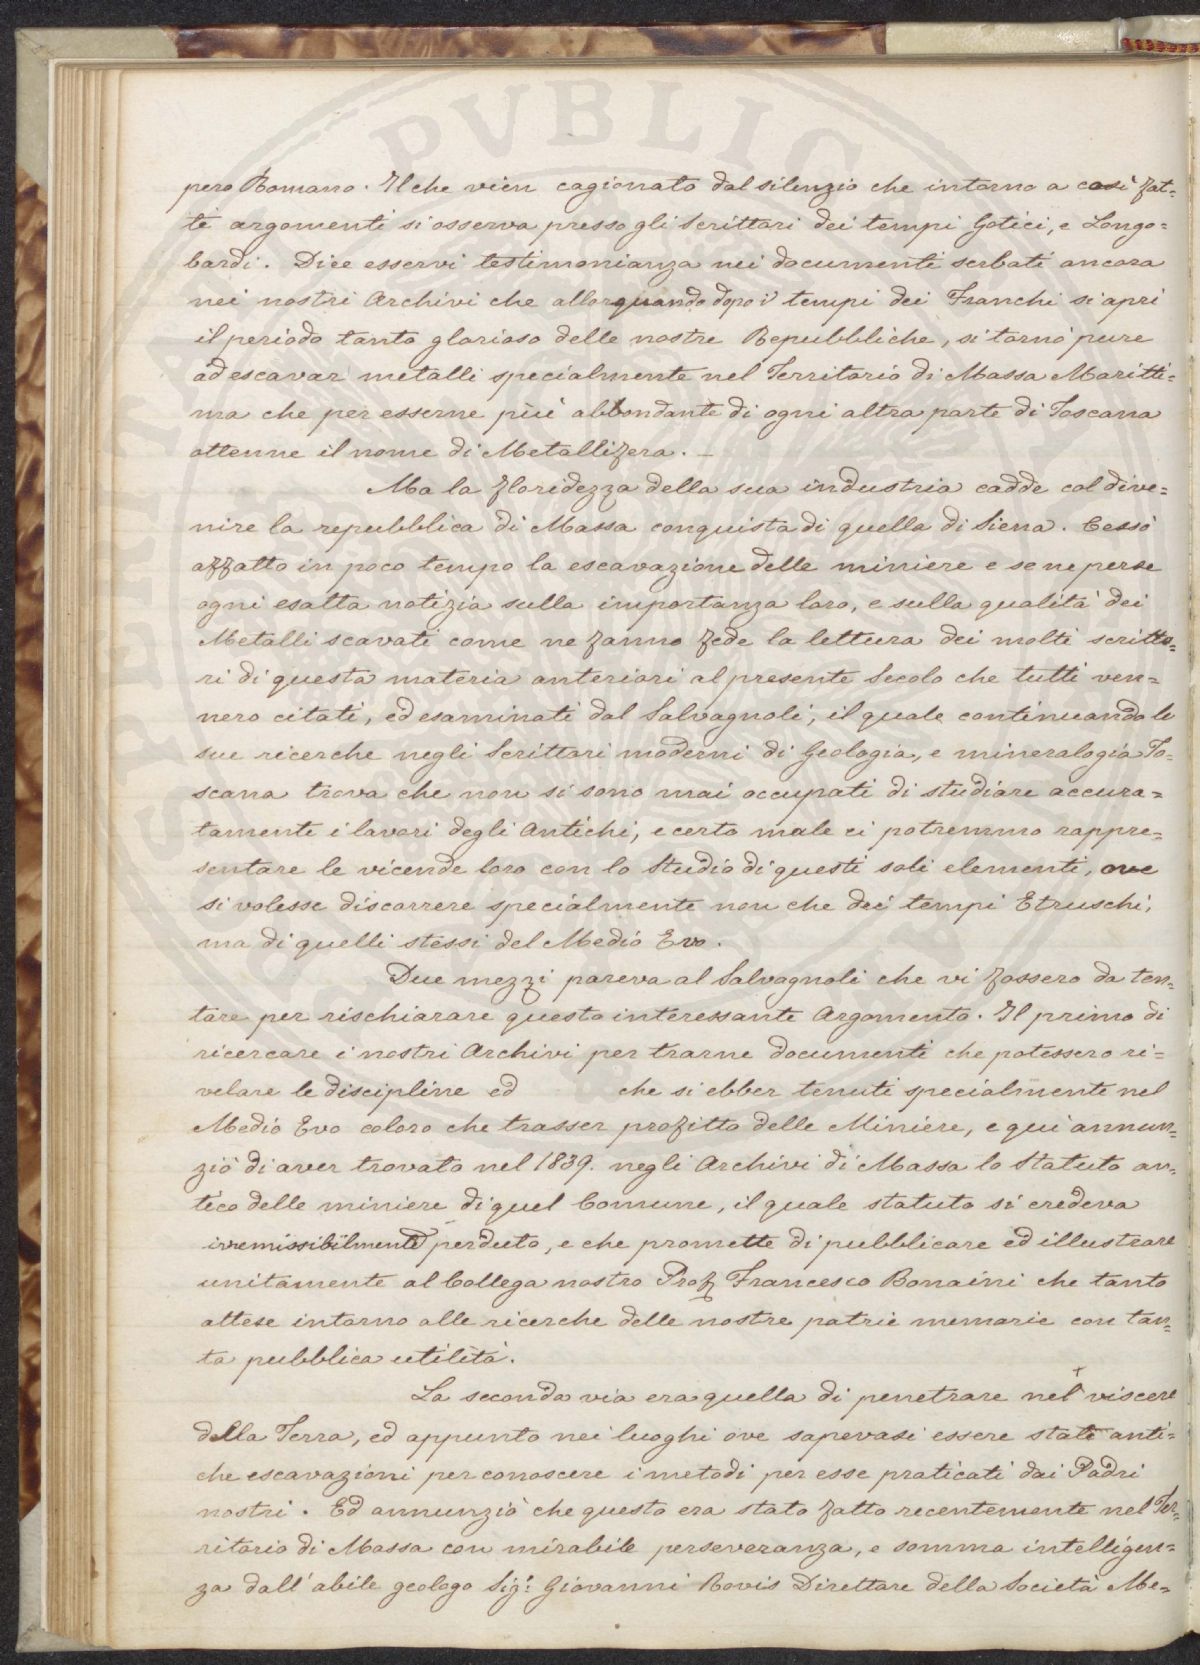 pero Romano. Il che vien cagionato dal silenzio che intorno a così fat=
te argomenti si osserva presso gli Scrittori dei tempi Gotici, e Longo=
bardi. Dice esservi testimonianza nei documenti serbati ancora
nei nostri Archivi che allorquando dopo i tempi dei Franchi si aprì
il periodo tanto glorioso delle nostre Repubbliche, si tornò pure
ad escavar metalli specialmente nel Territorio di Massa Maritti=
ma che per esserne più abbondante di ogni altra parte di Toscana
ottenne il nome di Metallifera. _
Ma la floridezza della sua industria cadde col dive=
nire la repubblica di Massa conquista di quella di Siena. Cessò
affatto in poco tempo la escavazione delle miniere e se ne perse
ogni esatta notizia sulla importanza loro, e sulla qualità dei
Metalli scavati come ne fanno fede la lettura dei molti scritto=
ri di questa materia anteriori al presente Secolo che tutti ven=
nero citati, ed esaminati dal Salvagnoli, il quale continuando le
sue ricerche negli Scrittori moderni di Geologia, e mineralogia To=
scana trova che non si sono mai occupati di studiare accura=
tamente i lavori degli Antichi, e certo male ci potremmo rappre=
sentare le vicende loro con lo Studio di questi soli elementi, ove
si volesse discorrere specialmente non che dei tempi Etruschi,
ma di quelli stessi del Medio Evo.
Due mezzi pareva al Salvagnoli che vi fossero da ten=
tare per rischiarare questo interessante Argomento. Il primo di
ricercare i nostri Archivi per trarne documenti che potessero ri=
velare le discipline ed che si ebber tenuti specialmente nel
Medio Evo coloro che trasser profitto delle Miniere, e quì annun=
ziò di aver trovato nel 1839. negli Archivi di Massa lo Statuto an=
tico delle miniere di quel Comune, il quale statuto si credeva
irremissibilmente perduto, e che promette di pubblicare ed illustrare
unitamente al Collega nostro Prof. Francesco Bonaini che tanto
attese intorno alle ricerche delle nostre patrie memorie con tan=
ta pubblica utilità.
La seconda via era quella di penetrare nel viscere
della Terra, ed appunto nei luoghi ove sapevasi essere state anti=
che escavazioni per conoscere i metodi per esse praticati dai Padri
nostri. Ed annunziò che questo era stato fatto recentemente nel Ter=
ritorio di Massa con mirabile perseveranza, e somma intelligen=
za dall'abile geologo Sig.r Giovanni Rovis Direttore della Società Me=
PVBLIC